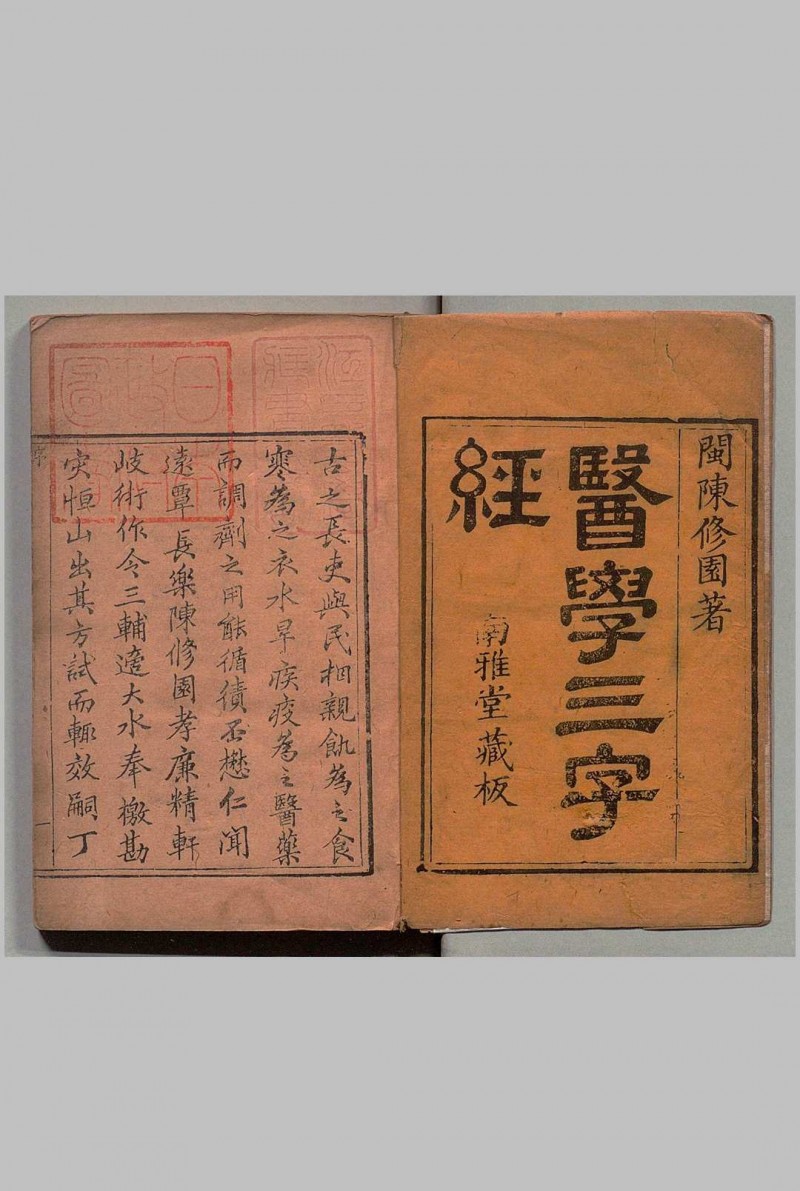 閩陳修園著
醫學三字
經
南雅堂藏板
古之長吏與民相親飢為之食
寒為之衣水旱疾疫為之醫藥
而調劑之用能循績丕懋仁聞
遠覃長樂陳修園孝廉精軒
岐術作令三輔適大水奉檄勘
灾恒山出其方試而輒效嗣丁
序
一